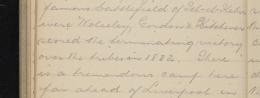 famous battlefield of Tel-el-Kebir
were Wolseley, Gordon & Kitchener
scored the terminating victory
over the tribes in 1882. There
is a tremendous camp here
far ahead of Liverpool in